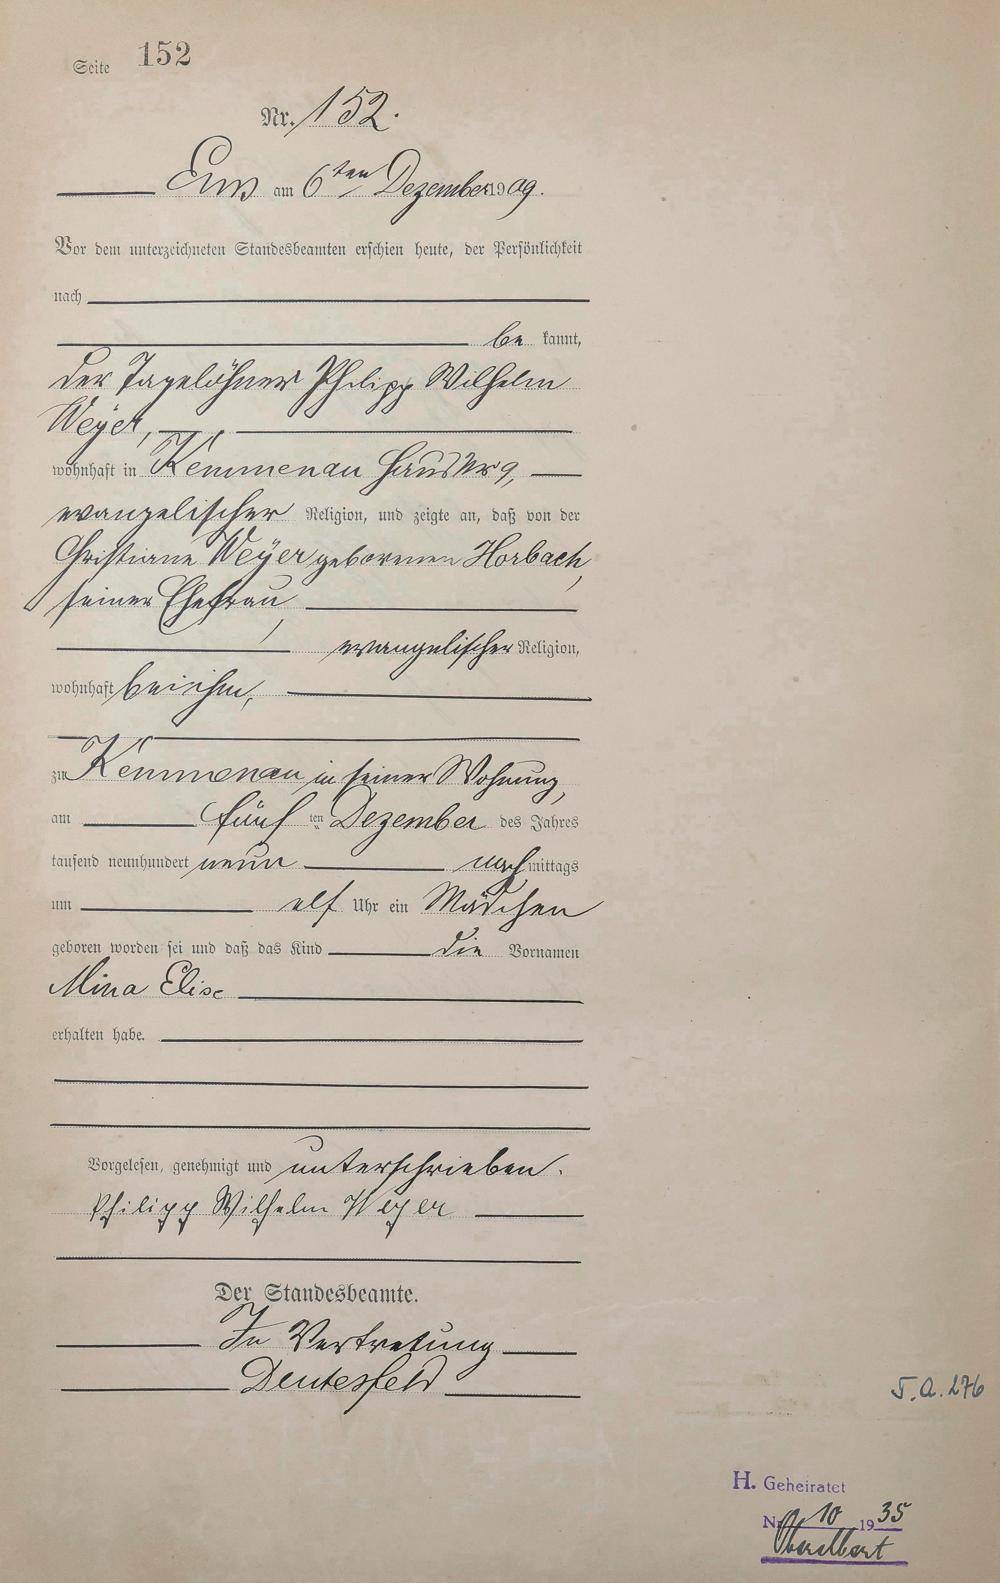 Seite 152
Nr. 152.
Ems am 6ten Dezember 1909.
Vor dem unterzeichneten Standesbeamten erschien heute, der Persönlichkeit
nach
be kannt,
der Tagelöhner Philipp Wilhelm
Weyer,
wohnhaft in Kemmenau Haus Nr 9,
evangelischer Religion, und zeigte an, daß von der
Christiane Weyer geborenen Horbach,
seiner Ehefrau,
evangelischer Religion,
wohnhaft bei ihm,
zu Kemmenau in seiner Wohnung,
am fünf ten Dezember des Jahres
tausend neunhundert neun nachmittags
um elf Uhr ein Mädchen
geboren worden sei und daß das Kind die Vornamen
Mina Elise
erhalten habe.
Vorgelesen, genehmigt und unterschrieben.
Philipp Wilhelm Weyer
Der Standesbeamte.
In Vertretung
Deutesfeld
T.A. 276
H. Geheiratet
Nr. 10 1935
Oberelbert